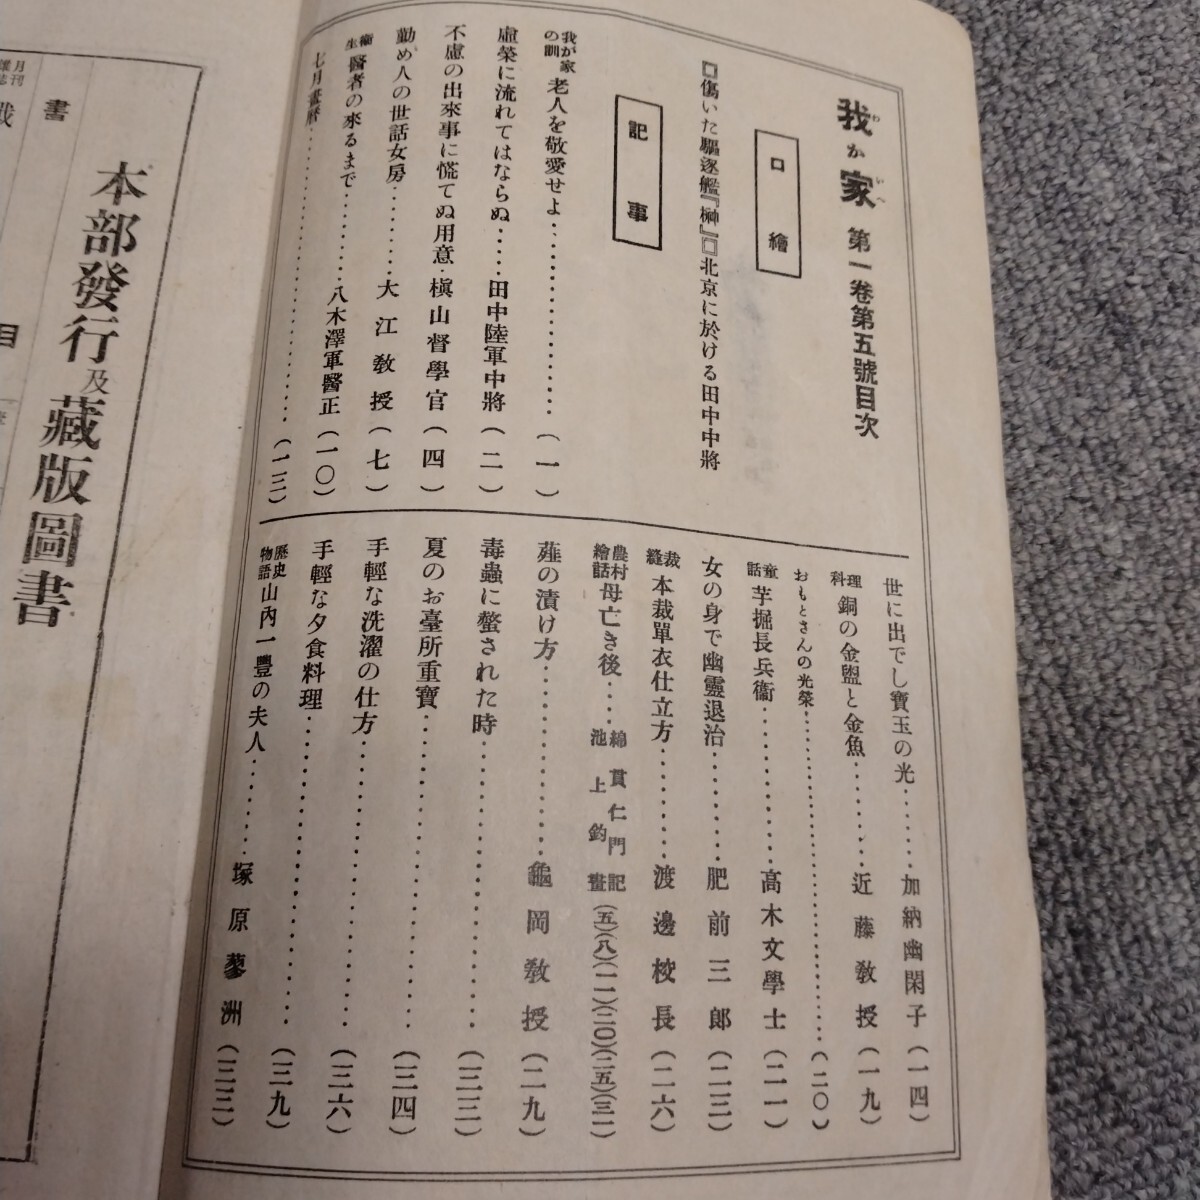 我が家 第一卷第五號目次
わ いへ
口繪
□傷いた驅逐艦『榊』□北京に於ける田中中將
記事
我が家の訓 老人を敬愛せよ……………(一)
虛榮に流れてはならぬ……田中陸軍中將(二)
不慮の出來事に慌てぬ用意・槇山督學官(四)
勤め人の世話女房……大江敎授(七)
衞生 醫者の來るまで………八木澤軍醫正(一〇)
七月畫曆……………(一三)
世に出でし寶玉の光………加納幽閑子(一四)
理科 銅の金盥と金魚………近藤敎授(一九)
おもとさんの光榮……………(二〇)
童話 芋掘長兵衞………高木文學士(二一)
女の身で幽靈退治………肥前三郎(二三)
裁縫 本裁單衣仕立方………渡邊校長(二六)
農村繪話 母亡き後……綿貫仁門記 池上鈞畫(五)(八)(一一)(二〇)(二五)(三一)
薤の漬け方……………龜岡敎授(二九)
毒蟲に螫された時……………(三三)
夏のお臺所重寶……………(三四)
手輕な洗濯の仕方……………(三六)
手輕な夕食料理……………(三九)
歷史物語 山內一豐の夫人………塚原蓼洲(三三)
本部發行及藏版圖書
月刊雜誌
書
目